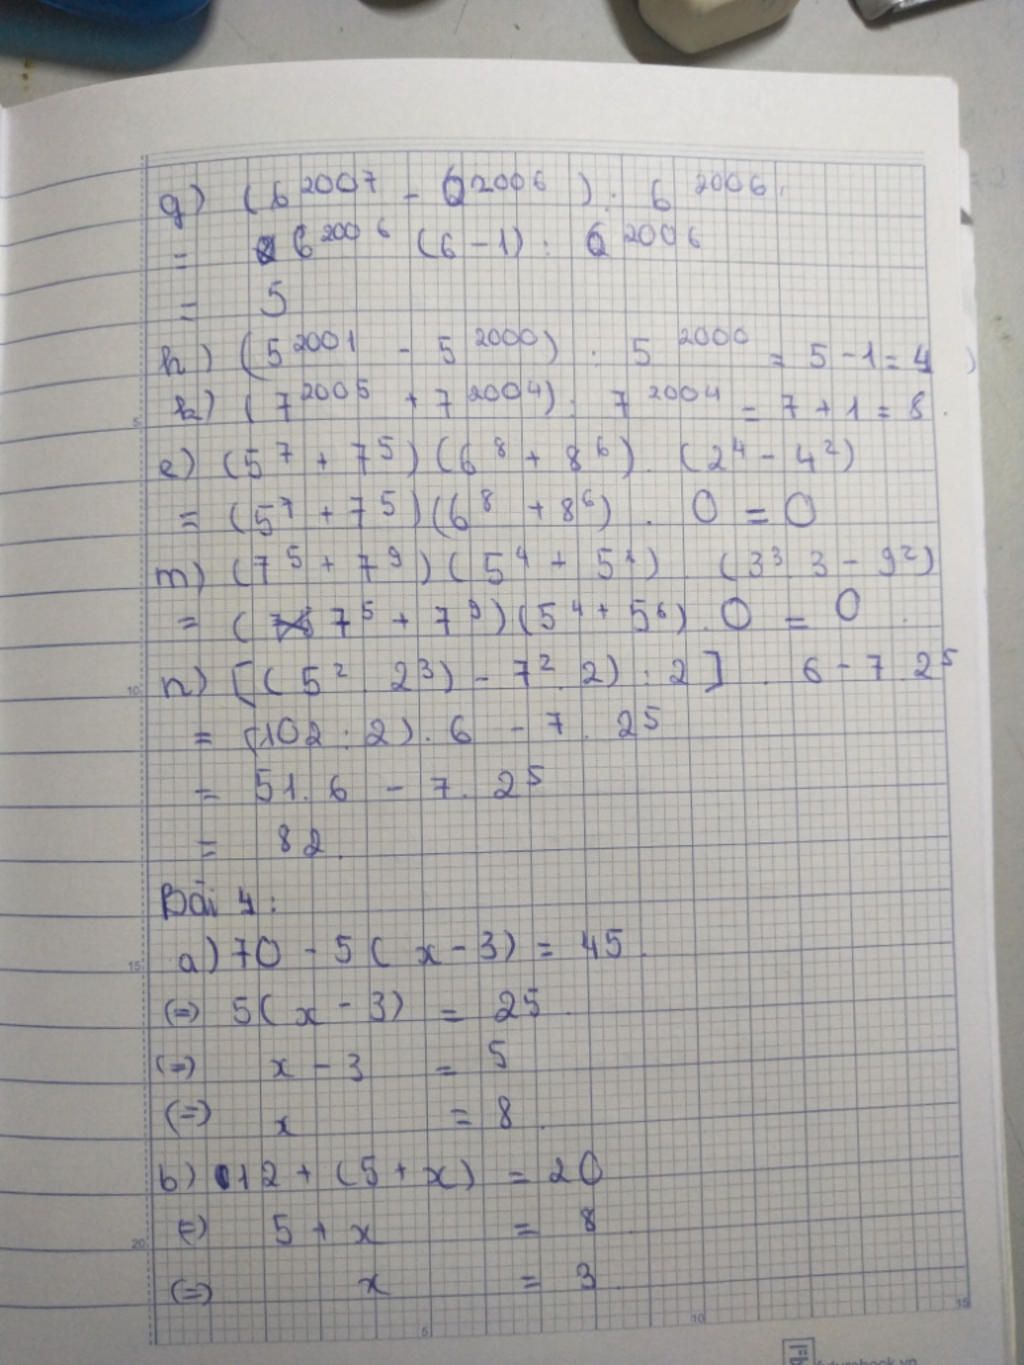 g) (6^2007 - 6^2006) : 6^2006.
= 6^2006 (6 - 1) : 6^2006
= 5
h) (5^2001 - 5^2000) : 5^2000 = 5 - 1 = 4
k) (7^2005 + 7^2004) : 7^2004 = 7 + 1 = 8.
e) (5^7 + 7^5)(6^8 + 8^6). (2^4 - 4^2)
= (5^7 + 7^5)(6^8 + 8^6). 0 = 0
m) (7^5 + 7^9)(5^4 + 5^6). (3^3 3 - 9^2)
= (7^5 + 7^9)(5^4 + 5^6). 0 = 0.
n) [(5^2 . 2^3) - 7^2 . 2) : 2] . 6 - 7 . 2^5
= (102 : 2) . 6 - 7 . 2^5
= 51. 6 - 7. 2^5
= 82.
Bài 4:
a) 70 - 5(x - 3) = 45.
(=) 5(x - 3) = 25.
(=) x - 3 = 5
(=) x = 8.
b) 12 + (5 + x) = 20
(=) 5 + x = 8
(=) x = 3
5
10
15
20
5
10
15